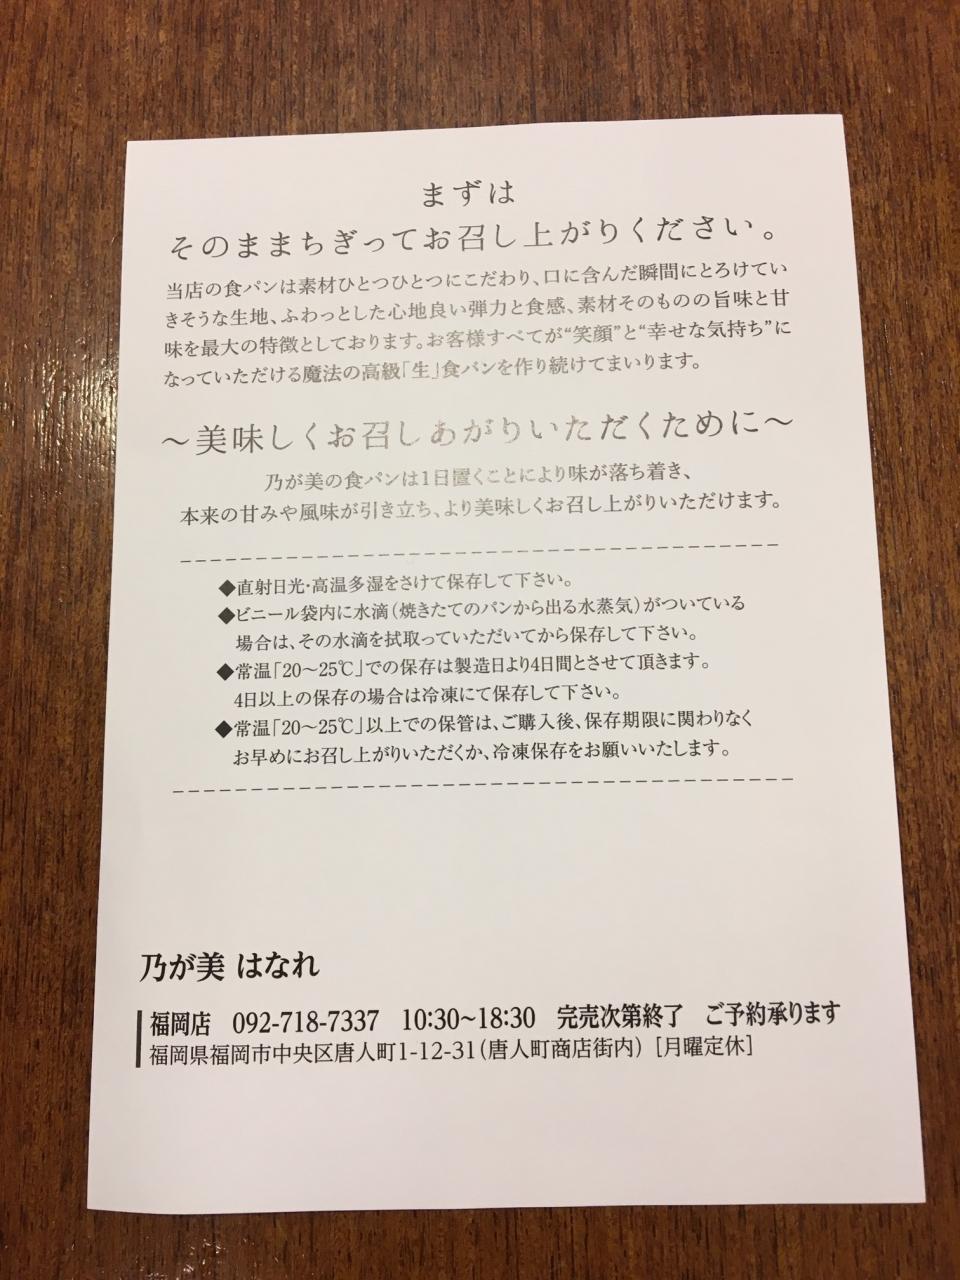 まずは
そのままちぎってお召し上がりください。
当店の食パンは素材ひとつひとつにこだわり、口に含んだ瞬間にとろけてい
きそうな生地、ふわっとした心地良い弾力と食感、素材そのものの旨味と甘
味を最大の特徴としております。お客様すべてが“笑顔”と“幸せな気持ち”に
なっていただける魔法の高級「生」食パンを作り続けてまいります。
～美味しくお召しあがりいただくために～
乃が美の食パンは1日置くことにより味が落ち着き、
本来の甘みや風味が引き立ち、より美味しくお召し上がりいただけます。
◆直射日光・高温多湿をさけて保存して下さい。
◆ビニール袋内に水滴（焼きたてのパンから出る水蒸気）がついている
場合は、その水滴を拭取っていただいてから保存して下さい。
◆常温「20～25℃」での保存は製造日より4日間とさせて頂きます。
4日以上の保存の場合は冷凍にて保存して下さい。
◆常温「20～25℃」以上での保管は、ご購入後、保存期限に関わりなく
お早めにお召し上がりいただくか、冷凍保存をお願いいたします。
乃が美 はなれ
福岡店 092-718-7337 10:30~18:30 完売次第終了 ご予約承ります
福岡県福岡市中央区唐人町1-12-31（唐人町商店街内）［月曜定休］